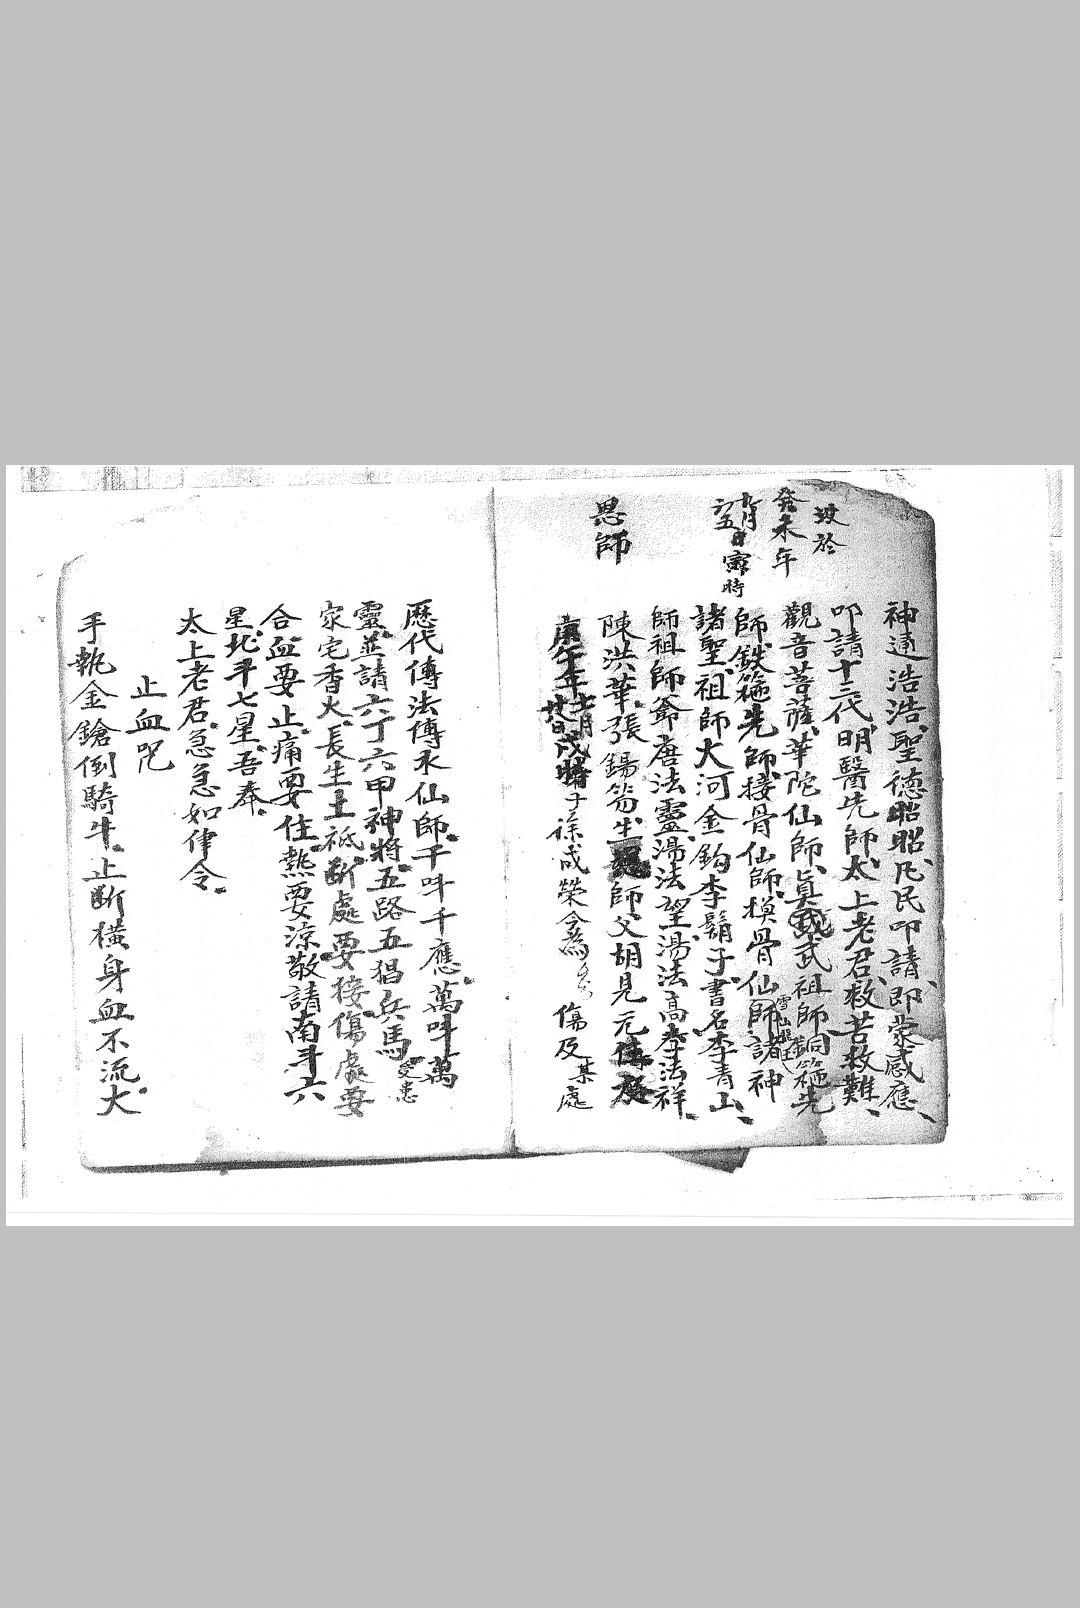 神通浩浩、聖德昭昭、凡民叩請、即蒙感應、
叩請十三代明醫先師、太上老君、救苦救難、
觀音菩薩、華陀仙師、眞武祖師、銅箍先
師、鉄箍先師、接骨仙師、摸骨仙師、諸神
雪山
諸聖、祖師大河金鈎李鬍子、書名李青山、
師祖師爺唐法靈、湯法望、湯法高、李法祥、
陳洪華、張錫 生 師父胡見元
庚午年 七月
廿 日 戌時 子徐成榮今為 傷及某處
恩師
於
癸未年
九月
五日寅時
歷代傳法傳永仙師、千呌千應、萬呌萬
靈、並請六丁六甲神將、五路五猖兵馬、
受患
家宅香火、長生土祗、斷處要接、傷處要
合、血要止、痛要住、熱要涼、敬請南斗六
星、北斗七星、吾奉、
太上老君、急急如律令、
止血咒
手執金鎗倒騎牛、止斷橫身血不流、大